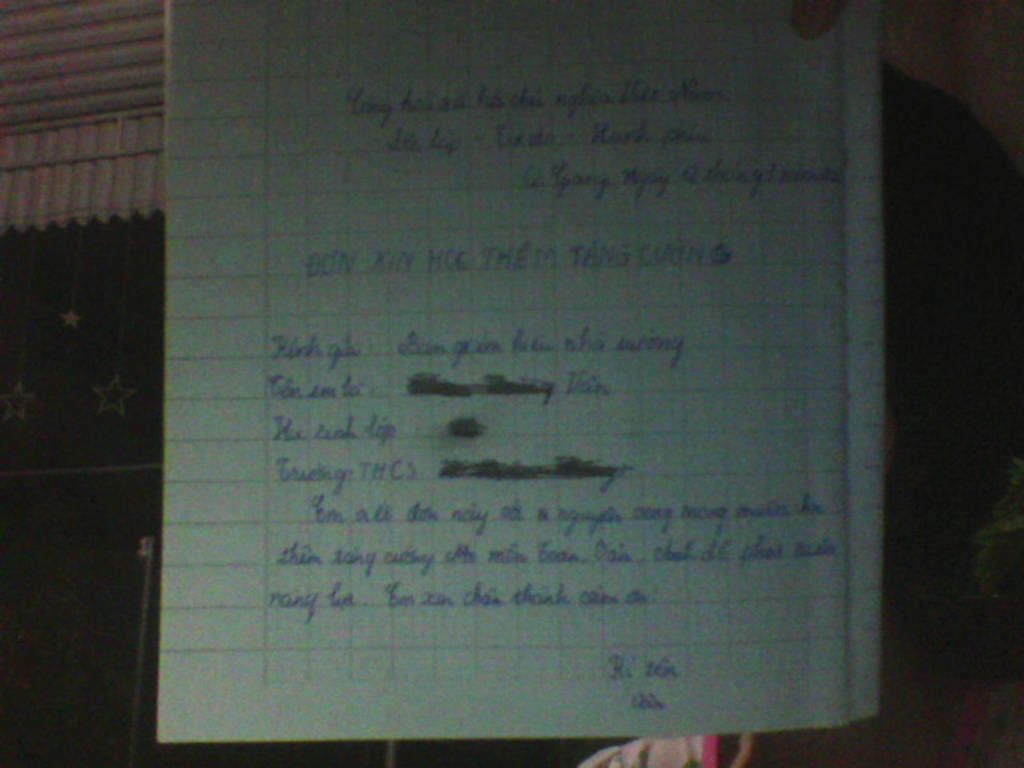 Cộng hoà xã hội chủ nghĩa Việt Nam
Độc lập - Tự do - Hạnh phúc
Giang ngày 12 tháng 1 năm
ĐƠN XIN HỌC THÊM TĂNG CƯỜNG
Kính gửi: Ban giám hiệu nhà trường
Tên em là: Vân
Học sinh lớp
Trường: THCS
Em viết đơn này với nguyện vọng mong muốn học
thêm tăng cường môn Toán. Văn. để phát triển
năng lực. Em xin chân thành cảm ơn!
Kí tên
Vân